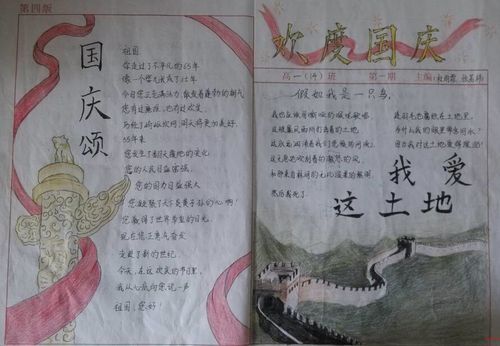 第四版
国庆颂
祖国
你走过了不平凡的65年
今日您正充满活力,散发着蓬勃的朝气
您有过
也有过欢笑
65年来
您发生了翻天覆地的变化
您的人民日益富强
您的国力日益强大
您凝聚了天下炎黄子孙的心啊!
您赢得了世界
的目光
现在您正意气奋发
走进了新的世纪
今天,在这欢庆的节日里,
我从心底向您说一声
祖国:您好!
欢度国庆
高一(14)班 第一期 主编:
假如我是一只鸟,
我也应该用嘶哑的喉咙歌唱
这被暴风雨所打击着的土地
这永远汹涌着我们的悲愤的河流
这无止息地吹刮着的激怒的风
和那来自林间的无比温柔的黎明
然后我死了
连羽毛也腐烂在土地里。
为什么我的眼里常含泪水?
因为我对这土地爱得深沉!
我爱
这土地